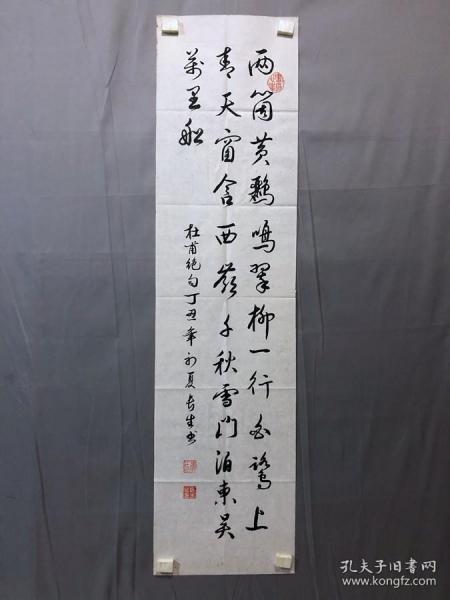 两箇黄鹂鸣翠柳一行白鹭上
青天窗含西岭千秋雪门泊东吴
万里船
杜甫绝句丁丑年初夏长生书
孔夫子旧书网
www.kongfz.com